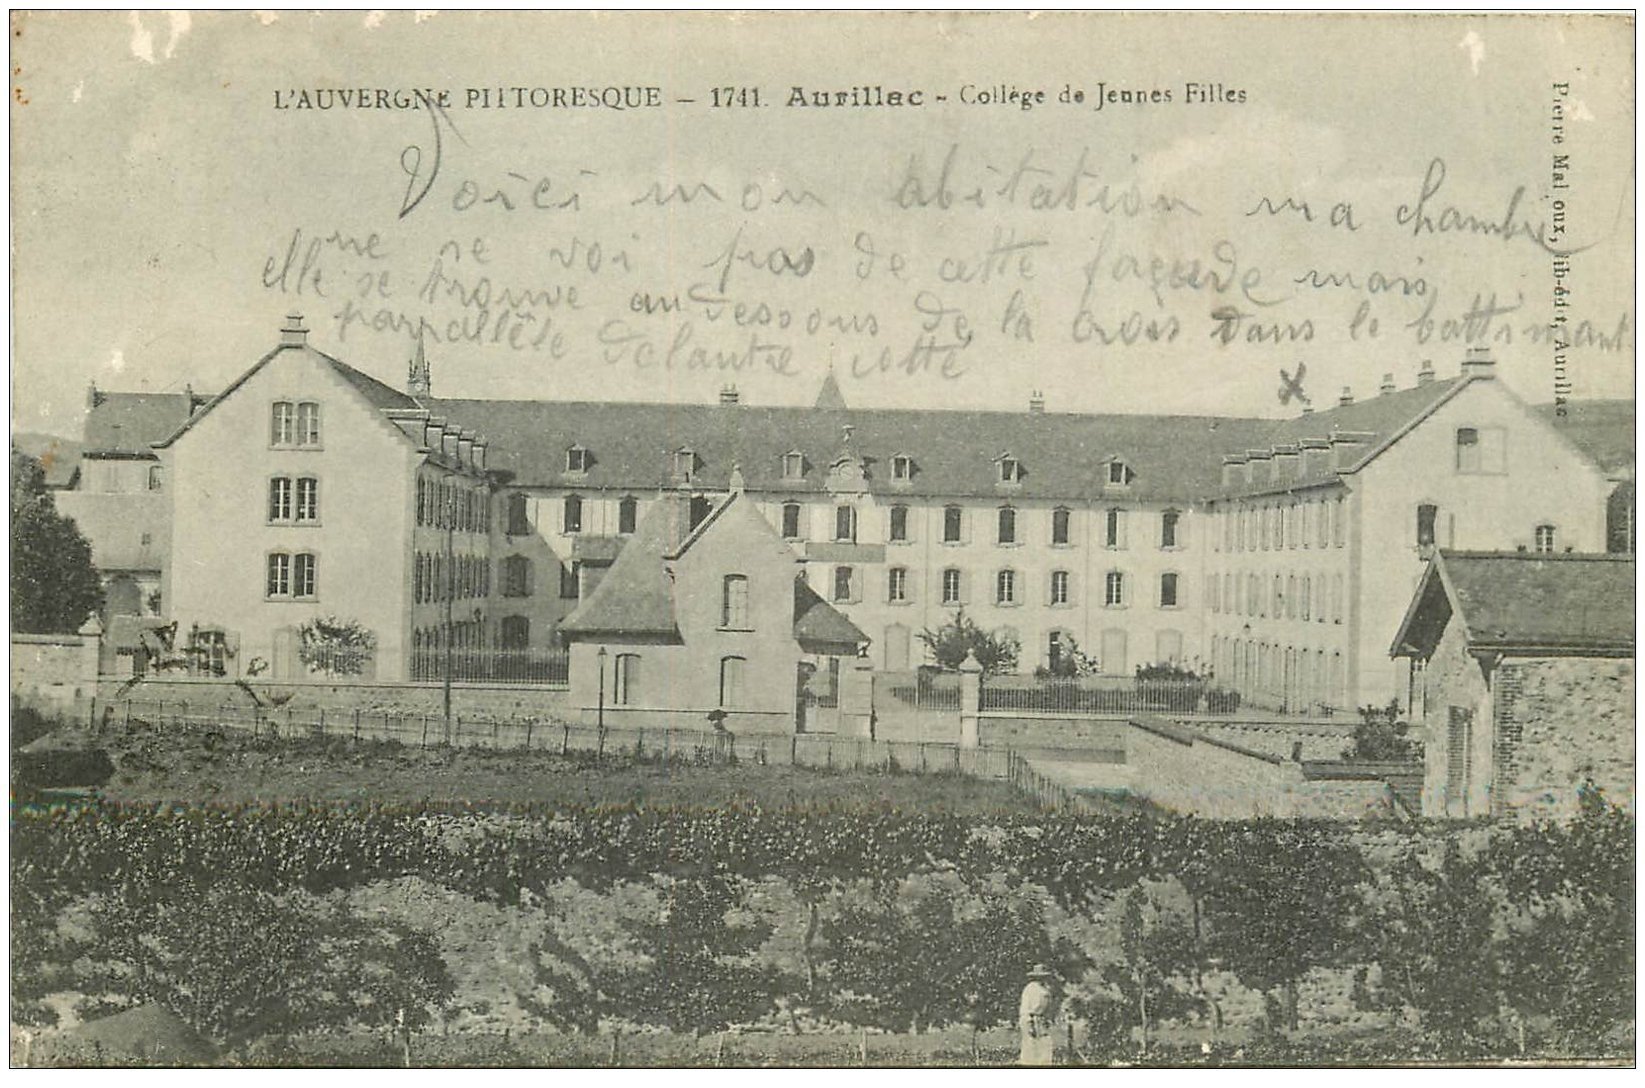 L'AUVERGNE PITTORESQUE – 1741. Aurillac - Collège de Jeunes Filles
Voici mon abitation ma chambre
ne se voi pas de cette façade mais
elle se trouve au dessous de la croix dans le battimant
parrallêle de lautre cotté
X
Pierre Mal oux, lib-édit, Aurillac